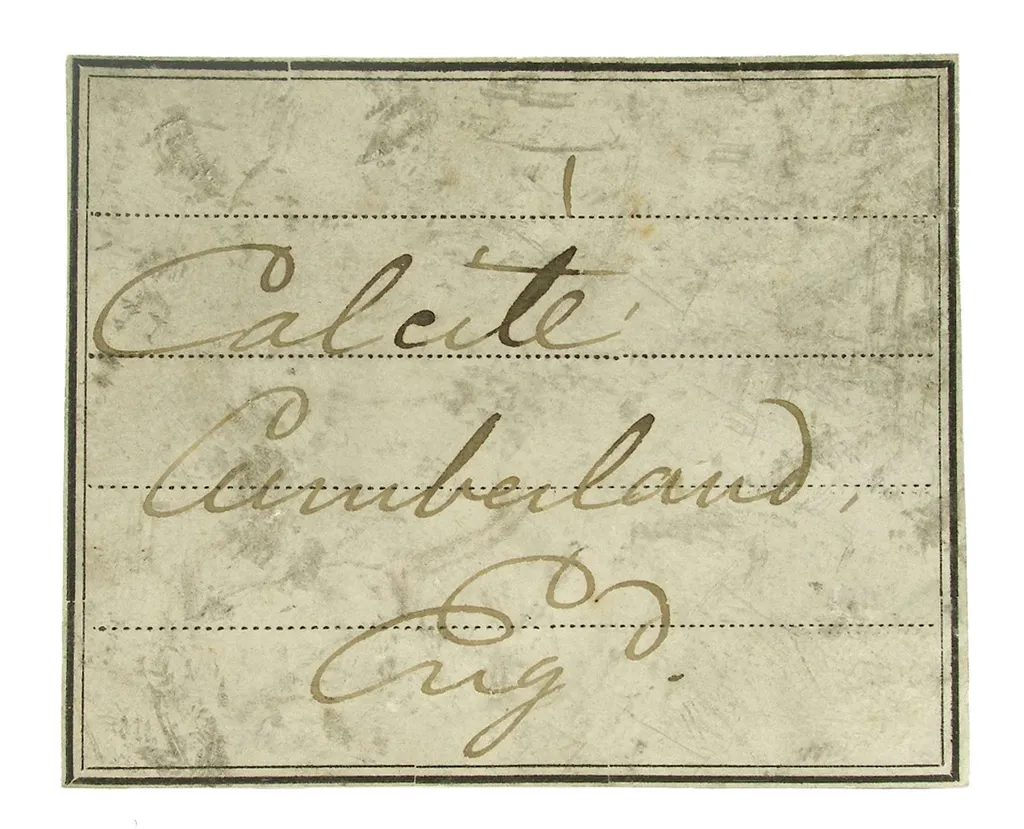 1
Calcite
Cumberland,
Engd.